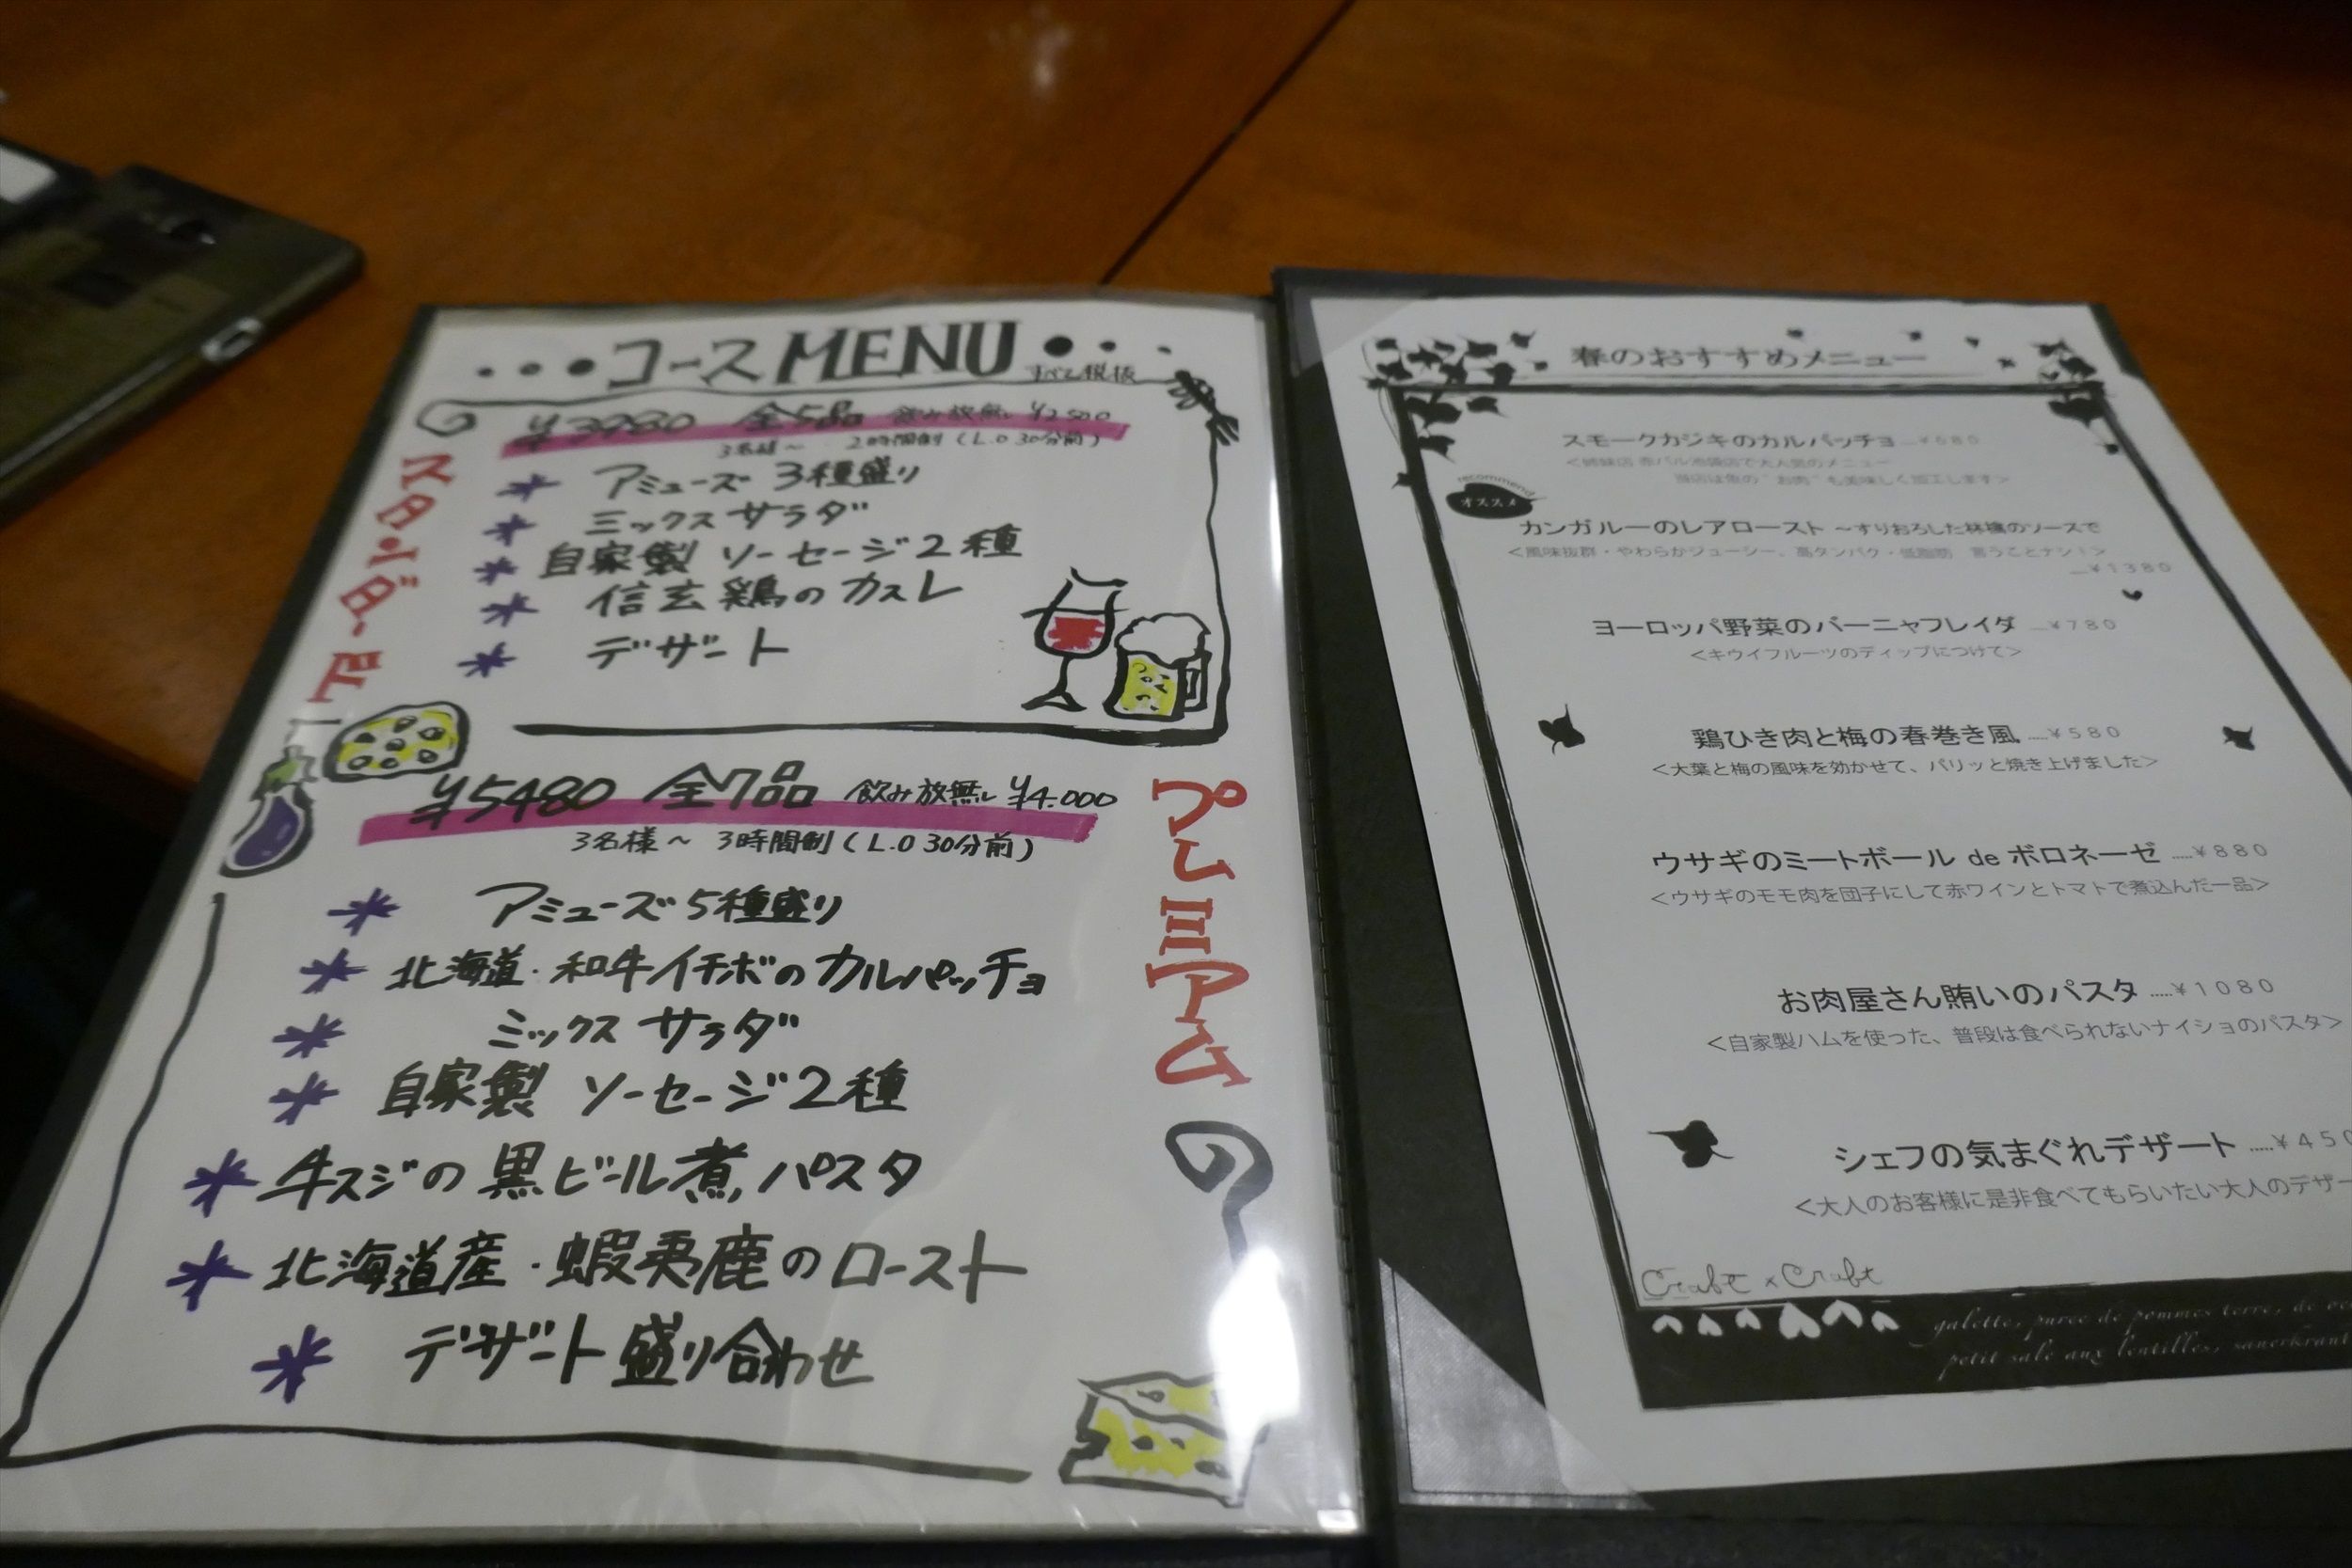 コースMENU
すべて税抜
スタンダード
¥3980 全5品 飲み放無し ¥2500
3名様～ 2時間制(L.O 30分前)
アミューズ 3種盛り
ミックスサラダ
自家製 ソーセージ2種
信玄鶏のカスレ
デザート
プレミアム
¥5480 全7品 飲み放無し ¥4.000
3名様～ 3時間制(L.O 30分前)
アミューズ 5種盛り
北海道・和牛イチボのカルパッチョ
ミックスサラダ
自家製 ソーセージ2種
牛スジの黒ビール煮パスタ
北海道産・蝦夷鹿のロースト
デザート盛り合わせ
春のおすすめメニュー
スモークカジキのカルパッチョ ...¥680
<姉妹店 赤バル池袋店で大人気のメニュー
当店は魚の"お肉"も美味しく加工します>
recommend
オススメ
カンガルーのレアロースト ～すりおろした林檎のソースで
<風味抜群・やわらかジューシー、高タンパク・低脂肪 言うことナシ！>
...¥1380
ヨーロッパ野菜のバーニャフレイダ ...¥780
<キウイフルーツのディップにつけて>
鶏ひき肉と梅の春巻き風 .....¥580
<大葉と梅の風味を効かせて、パリッと焼き上げました>
ウサギのミートボール de ボロネーゼ .....¥880
<ウサギのモモ肉を団子にして赤ワインとトマトで煮込んだ一品>
お肉屋さん賄いのパスタ .....¥1080
<自家製ハムを使った、普段は食べられないナイショのパスタ>
シェフの気まぐれデザート .....¥450
<大人のお客様に是非食べてもらいたい大人のデザー
Craft × Craft
galette, puree de pommes terre, de
petit sale aux lentilles, sauerkraut